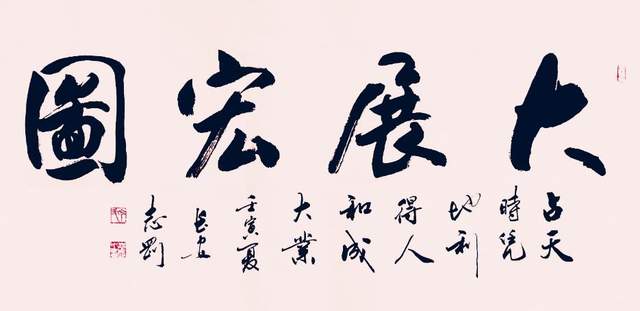 大展宏圖
占天
時凭
地利
得人
和成
大業
壬寅夏
長安
志剛